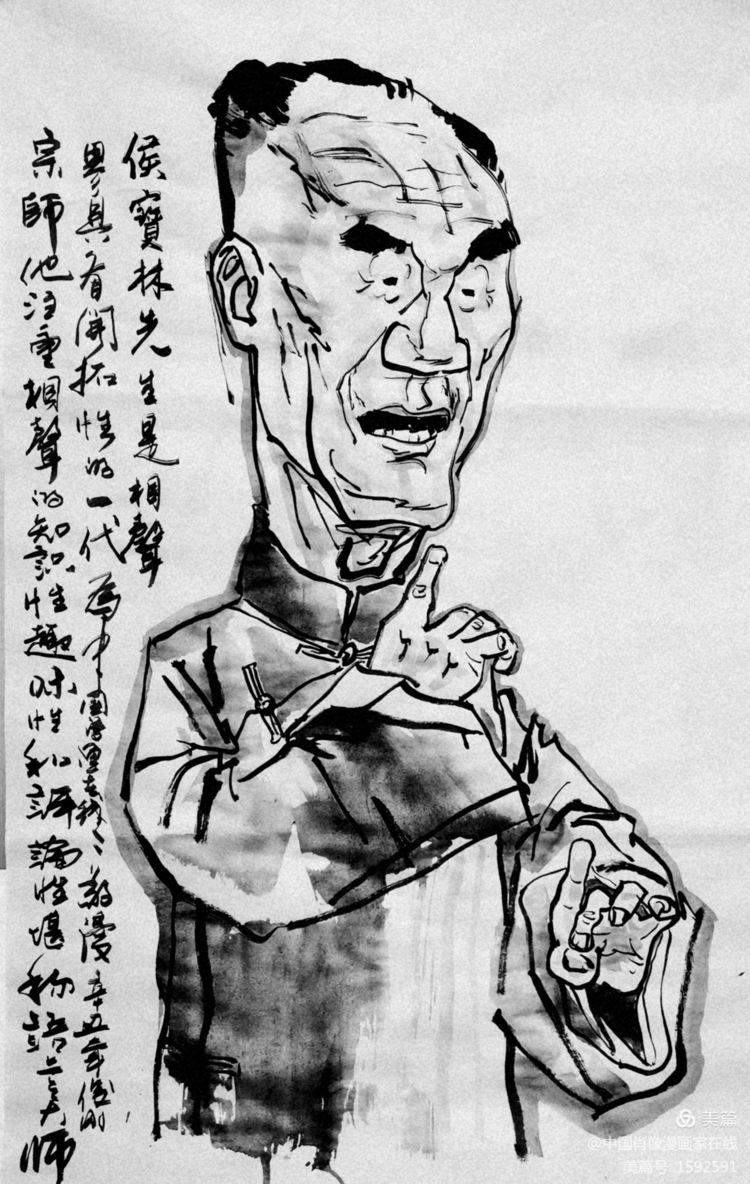 侯寶林先生是相聲
界具有開拓性的一代
宗師他注重相聲的知識性趣味性和詼諧性堪称語言大師
為中國漫 辛丑年
美篇
@中国肖像漫画家在线
美篇号: 1592591